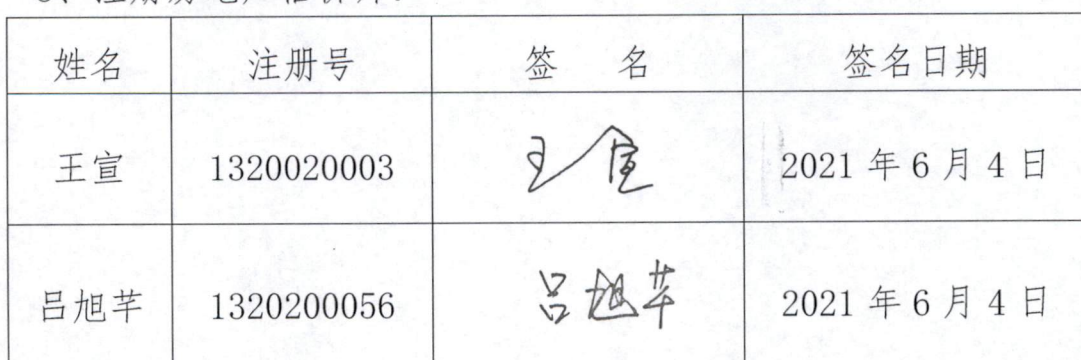 姓名 注册号 签 名 签名日期
王宣 1320020003 王宣 2021 年 6 月 4 日
吕旭芊 1320200056 吕旭芊 2021 年 6 月 4 日